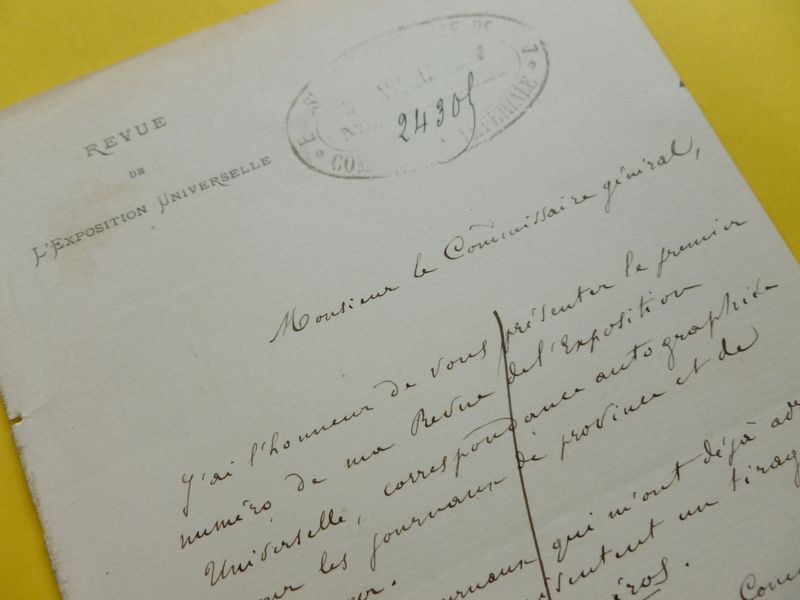 REVUE
DE
L'EXPOSITION UNIVERSELLE
24305
IMPÉRIALE
Monsieur le Commissaire général,
J'ai l'honneur de vous présenter le premier
numéro de ma Revue de l'Exposition
Universelle, correspondance autographiée
les journaux de province et de
qui m'ont déjà
un tirage